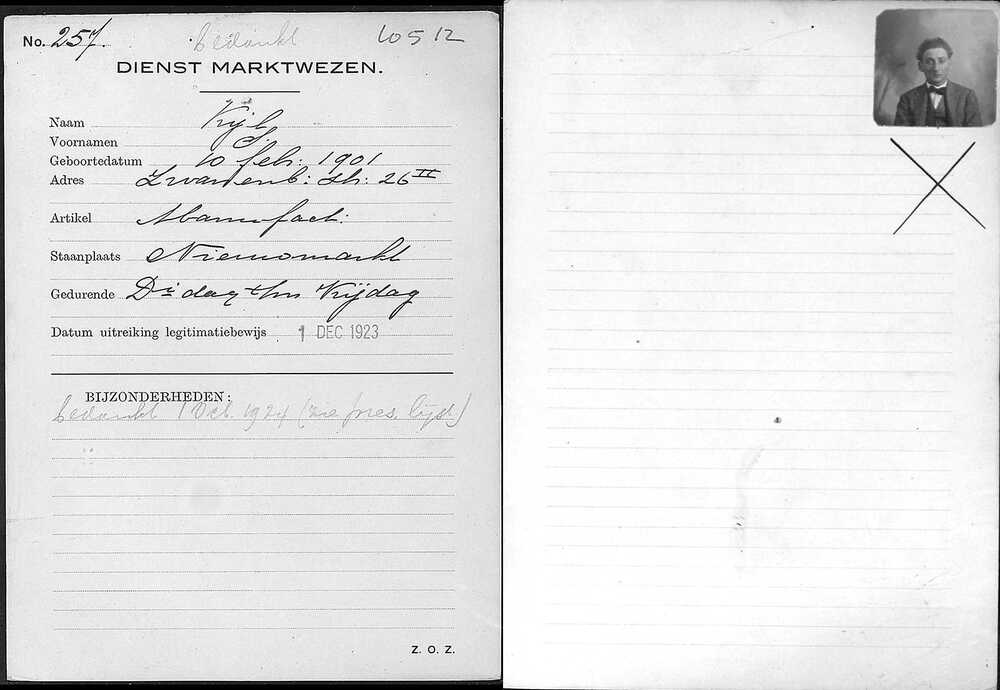 No. 257. bedankt 10512
DIENST MARKTWEZEN.
Naam Kijl
Voornamen S.
Geboortedatum 10 feb: 1901
Adres Zwanenb: str: 26 II
Artikel Manufact:
Staanplaats Nieuwmarkt
Gedurende Di dag t/m Vrijdag
Datum uitreiking legitimatiebewijs 1 DEC 1923
BIJZONDERHEDEN:
bedankt 1 Oct. 1924 (zie pres. lijst)
Z. O. Z.